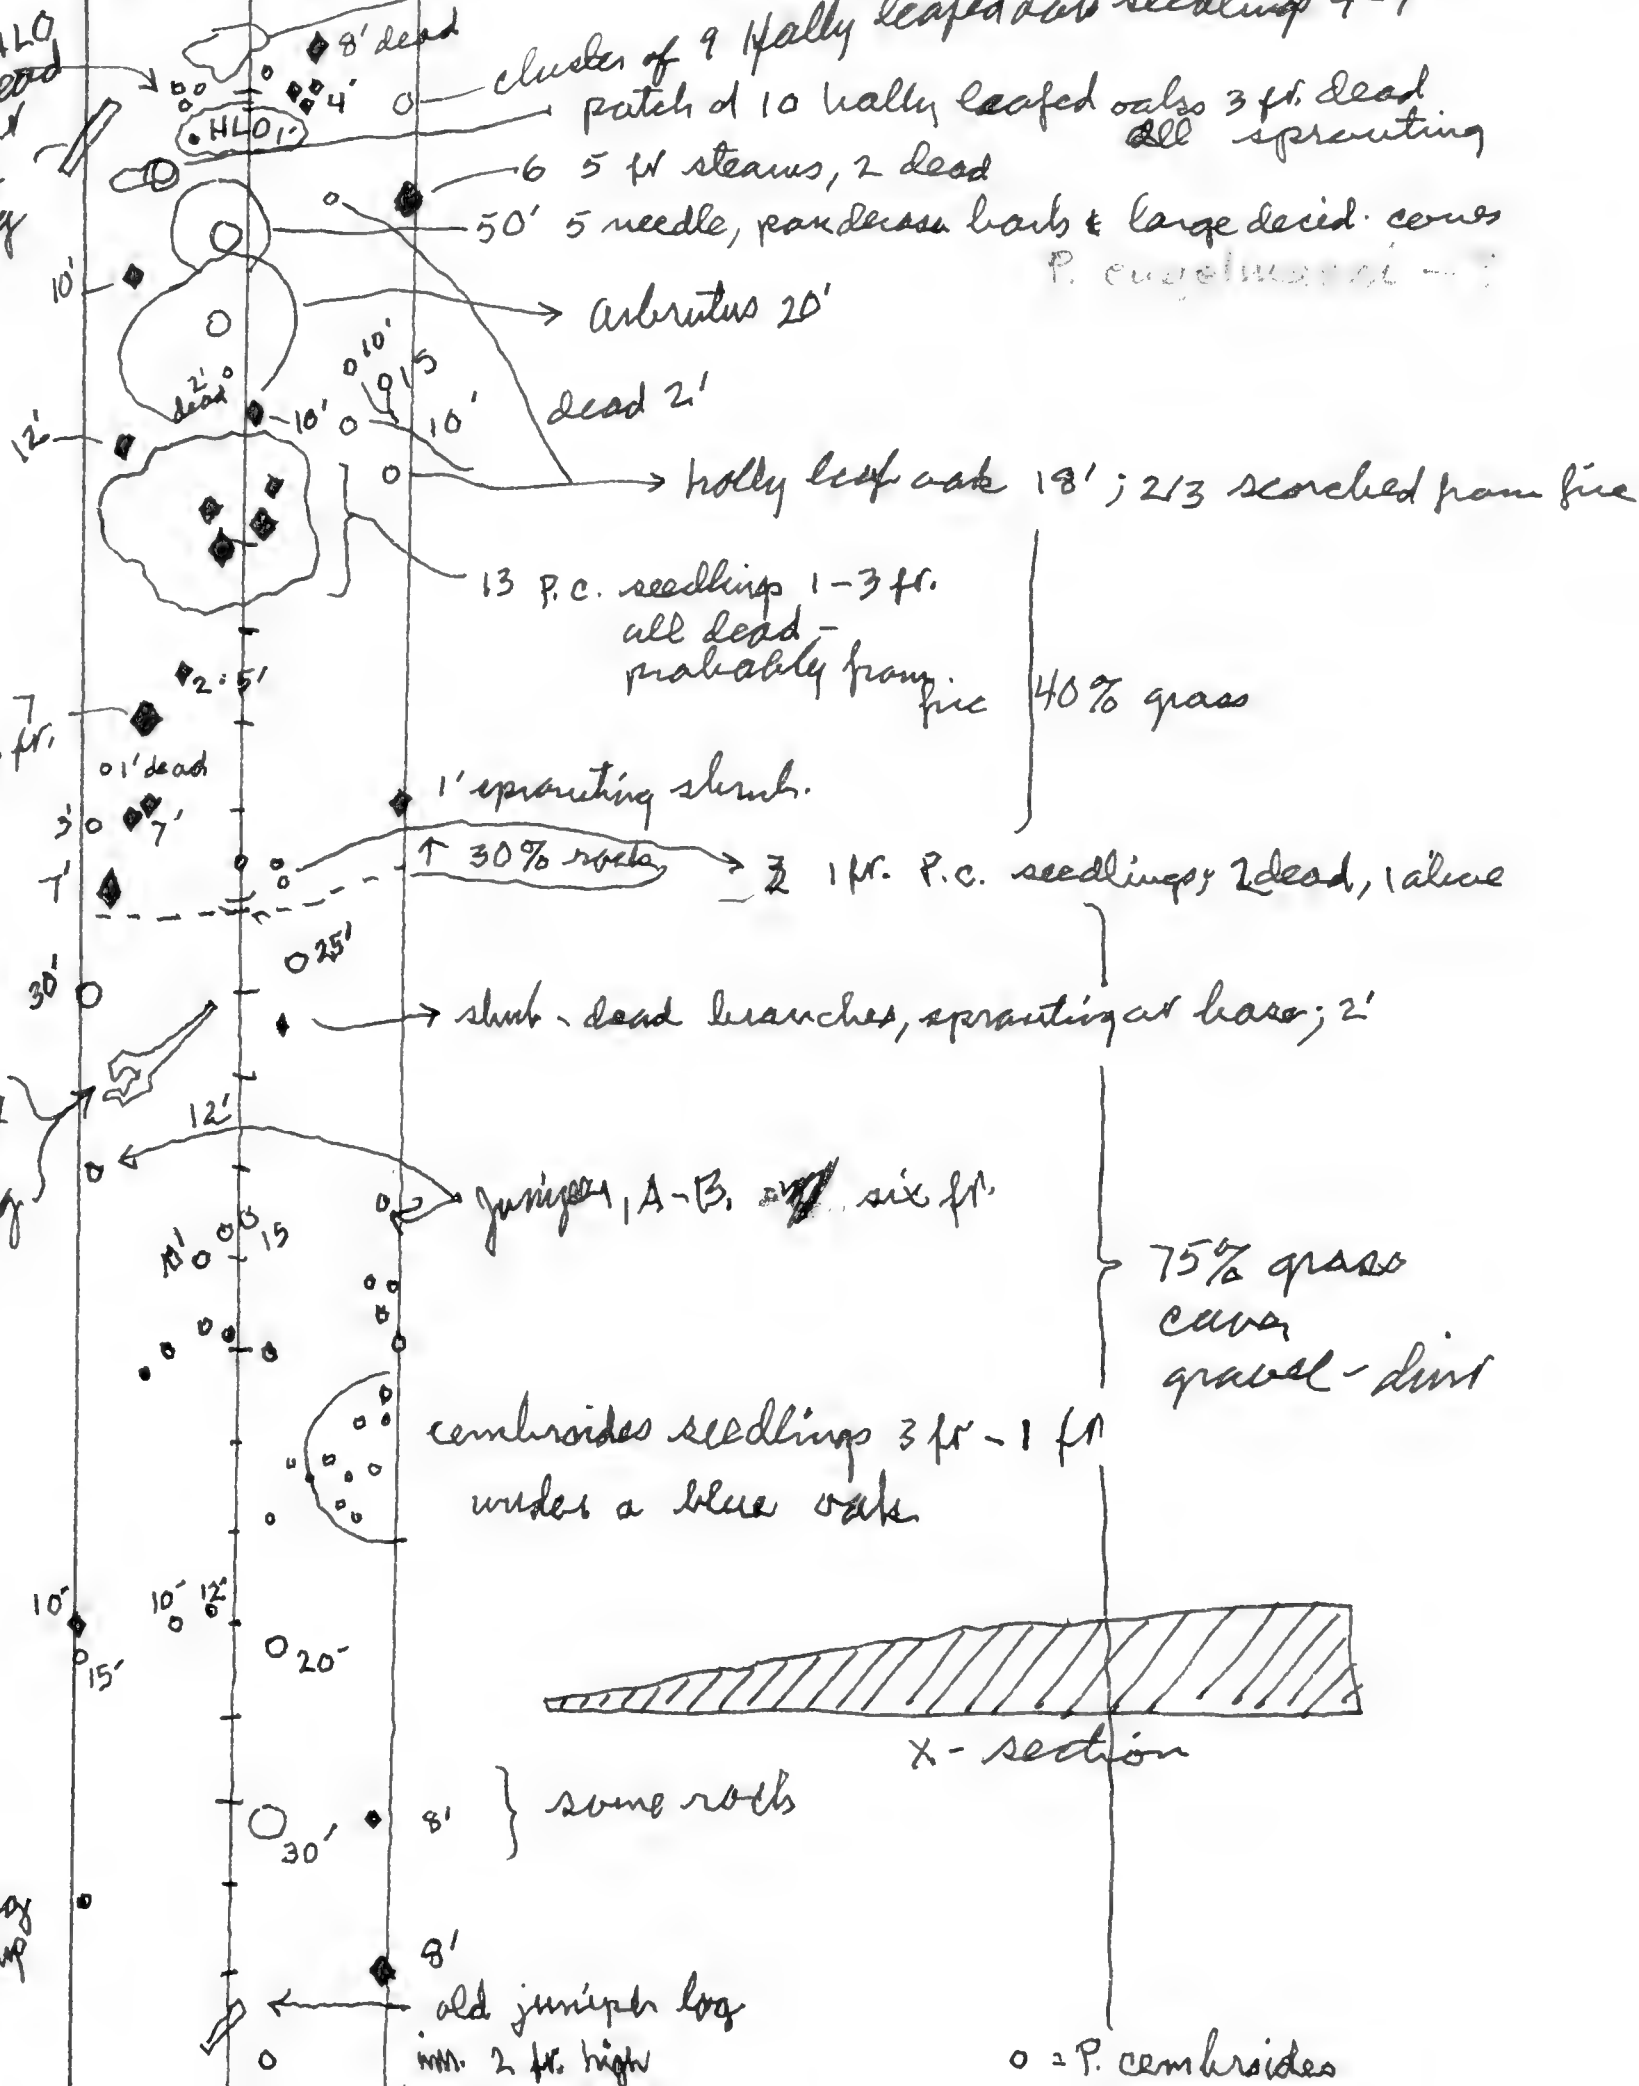 HLO
8' dead
cluster of 9 Holly leafed oak seedlings
4'
patch of 10 holly leafed oaks 3 ft. dead
all sprouting
HLO 1'
6 5 ft steams, 2 dead
50' 5 needle, ponderosa bark & large decid. cones
P. engelmannii - ?
10'
Arbrutus 20'
10'
15
2'
dead
dead 2'
10'
10'
12'
holly leaf oak 18'; 2/3 scorched from fire
13 P.C. seedlings 1-3 ft.
all dead -
probably from
fire
2.5'
40% grass
7
ft.
1' dead
1' sprouting shrub.
3'
7'
↑ 30% rock
3 1 ft. P.C. seedlings; 2 dead, 1 alive
7'
25'
30'
shrub - dead branches, sprouting at base; 2'
12'
juniper, A-B. six ft.
15
10'
75% grass
cover
gravel - dirt
cembroides seedlings 3 ft - 1 ft
under a blue oak
10'
10'
12'
20'
15'
X-section
some rock
8'
30'
8'
old juniper log
2 ft. high
o = P. cembroides